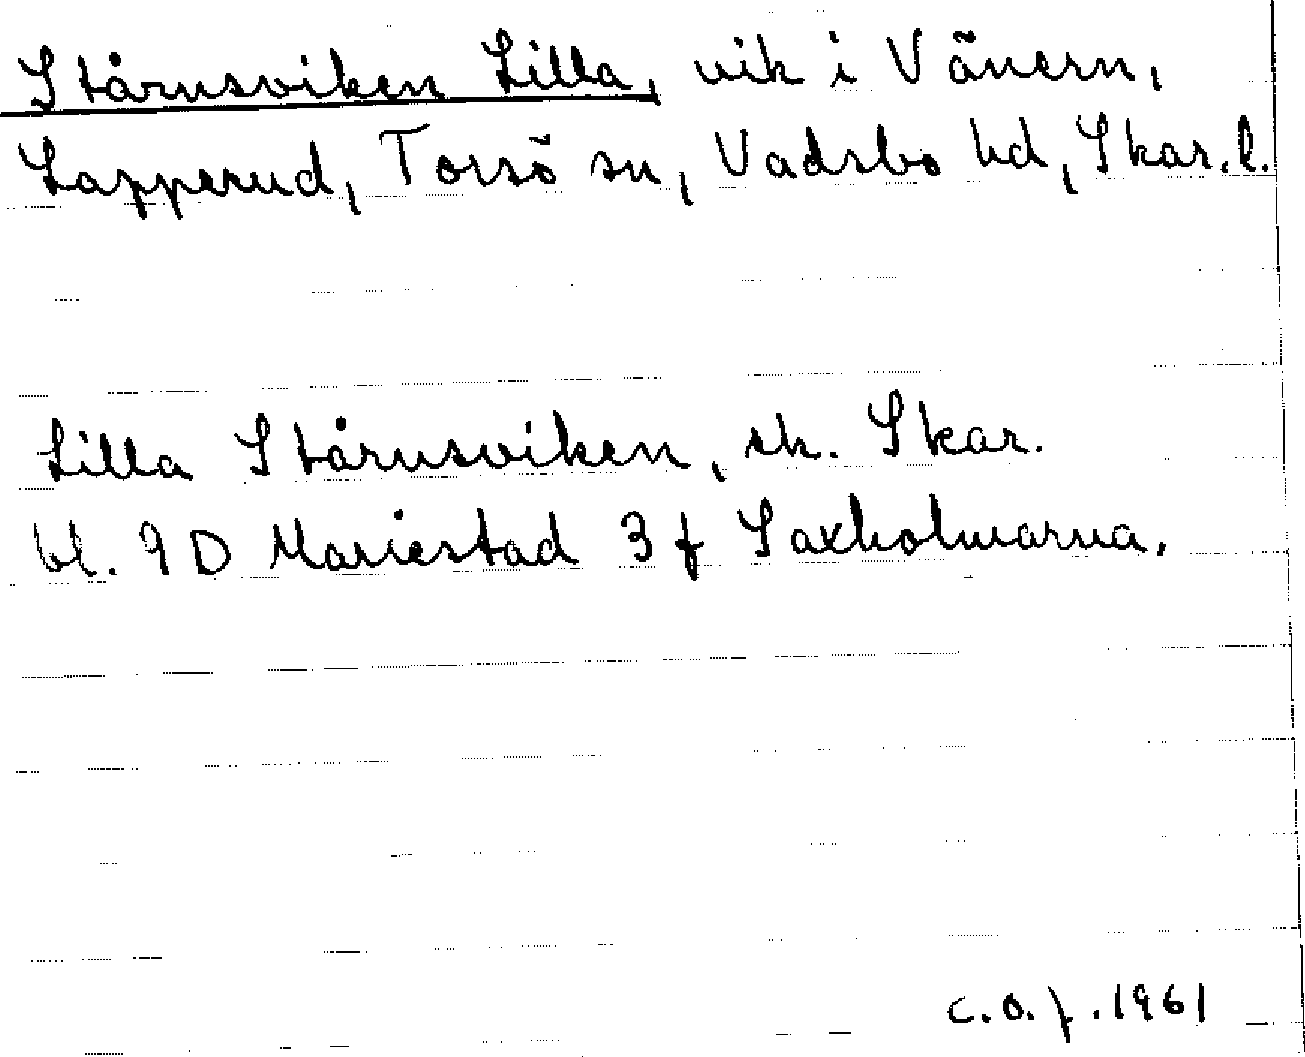 Stårnsviken Lilla, vik i Vänern,
Lapperud, Torsö sn, Vadsbo hd, Skar.l.
Lilla Stårnsviken, sk. Skar.
bl. 9 D Mariestad 3 f Saxholmarna.
c.o.f. 1961